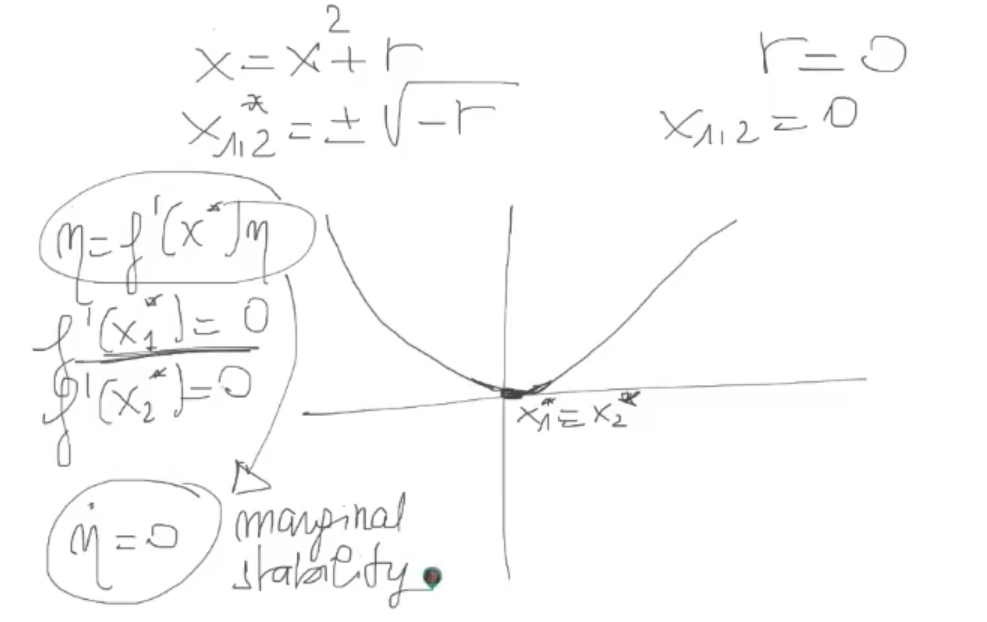 x = x² + r
x₁,₂* = ± √-r
r = 0
x₁,₂ = 0
η = f'(x*)η
f'(x₁*) = 0
f'(x₂*) = 0
x₁* = x₂*
η̇ = 0
marginal
stability